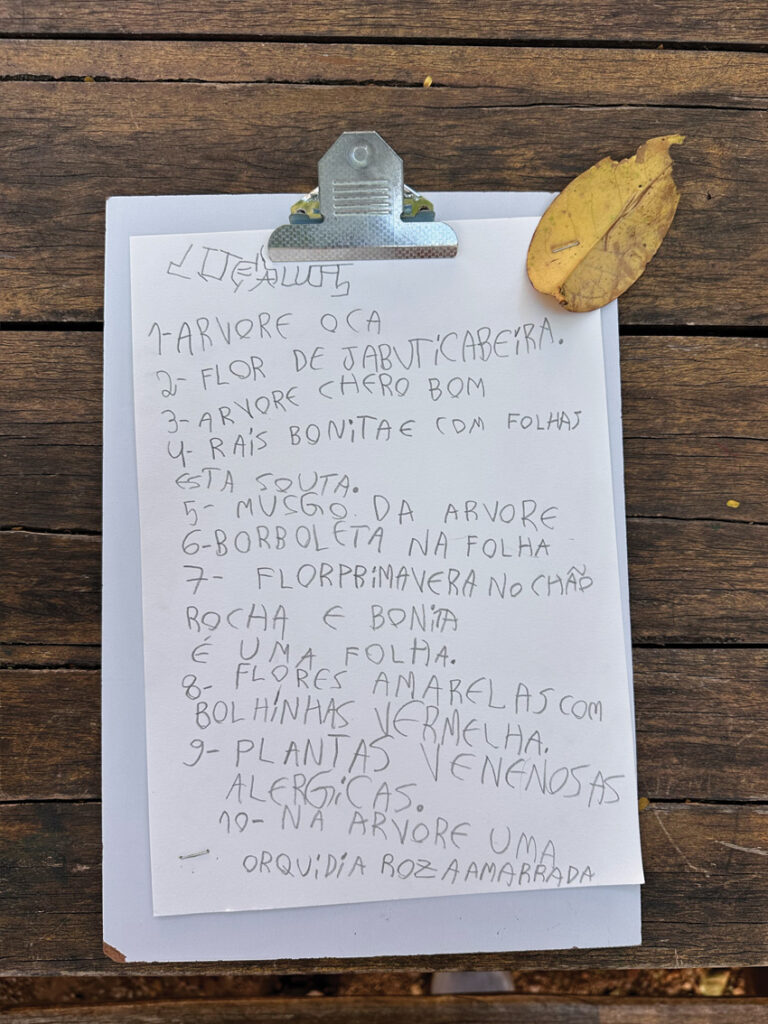 1- ARVORE OCA
2- FLOR DE JABUTICABEIRA.
3- ARVORE CHERO BOM
4- RAIS BONITA E COM FOLHAS
ESTA SOUTA.
5- MUSGO DA ARVORE
6- BORBOLETA NA FOLHA
7- FLOR PRIMAVERA NO CHÃO
ROCHA E BONITA
É UMA FOLHA.
8- FLORES AMARELAS COM
BOLHINHAS VERMELHA.
9- PLANTAS VENENOSAS
ALERGICAS.
10- NA ARVORE UMA
ORQUIDIA ROZA AMARRADA